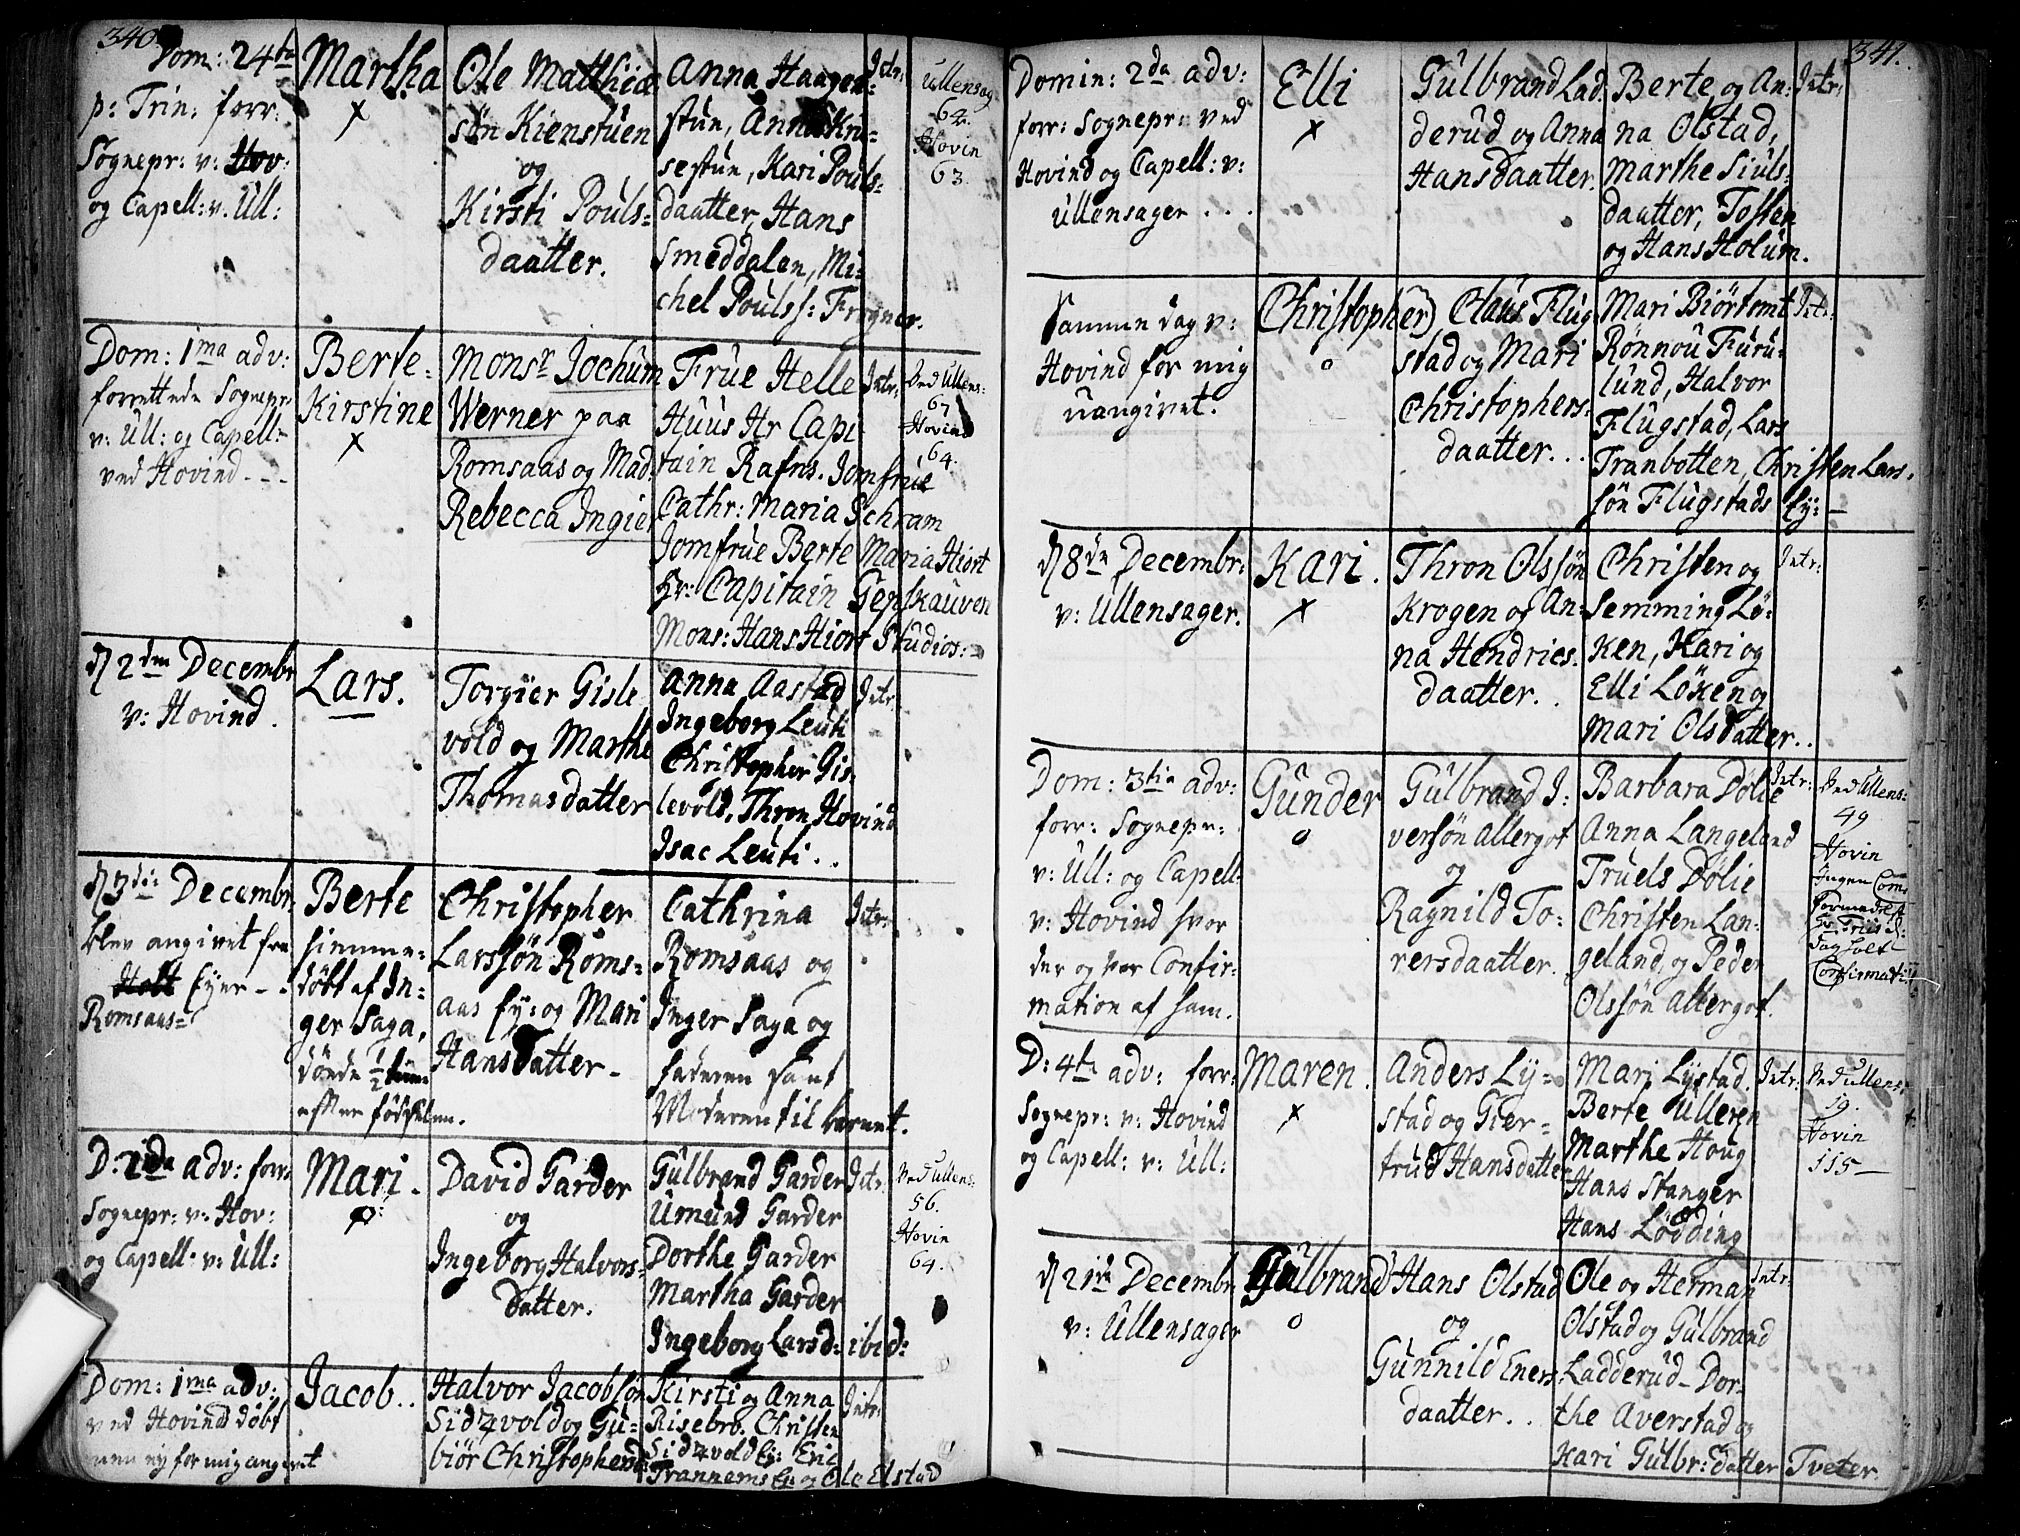 340.
Dom: 24te
p: Trin: forr:
Sognepr: v: Hov:
og Capell: v. Ull:
Martha
x
Ole Matthiæ
søn Kienstuen
og
Kirsti Pouls=
daatter.
Anna Haagen=
stun, Anna Kru=
sestun, Kari Pouls=
daatter, Hans
Smeddalen, Mi=
chel Poulss: Frogner.
Intr:
Ullensag
64.
Hovin
63.
Dom: 1ma adv:
forrettede Sognepr:
v: Ull: og Capell:
ved Hovind - - -
Berte=
Kirstine
x
Monsr Jochum
Werner paa
Romsaas og Mad:
Rebecca Ingier
Frue Helle
Huus Hr Capi
tain Rafns. Jomfrue
Cathr: Maria Schram
Jomfrue Berte Maria Hiort
Hr: Capitain
Mons: Hans Hiort Studios:
Intr:
Ved Ullens:
67
Hovind
64.
d 2den Decembr
v: Hovind.
Lars.
Torgier Gisle
vold og Marthe
Thomasdatter
Anna Aastad
Ingeborg Leuti
Christopher Gis
levold, Thron Hovind
Isac Leuti . .
Intr.
d 3die Decembr:
blev angivet fra
Holt Eyer - -
Romsaas=
Berte
hiemme=
døbt af In=
ger Saga,
døde 1/2 time
efter fødselen.
Christopher
Larssøn Roms=
aas Ey: og Mari
Hansdatter -
Cathrina
Romsaas og
Inger Saga og
faderen samt
Moderen til barnet.
Intr:
D: 2da adv: forr:
Sognepr: v: Hov:
og Capell: v: Ull:
Mari.
David Garder
og
Ingeborg Halvors=
datter.
Gulbrand Garder
Umund Garder
Dorthe Garder
Martha Garder
Ingeborg Larsd: ibid:
Intr.
Ved Ullens:
56.
Hovin
64.
Dom: 1ma adv:
ved Hovind døbt
men ey for mig angivet
Jacob..
Halvor Jacobsøn
Sidzvold og Gu=
biør Christophersd:
Kirsti og Anna
Risebro. Christen
Sidzvold Ey: Eric
Trannems Ey: og Ole Elstad
Intr:
341.
Domin: 2da adv:
forr: Sognepr: ved
Hovind og Capell: v:
Ullensager . . .
Elli
x
Gulbrand Lad=
derud og Anna
Hansdaatter.
Berte og An=
na Olstad,
Marthe Siuls=
daatter, Tosten
og Hans Holum.
Intr:
Samme dag v:
Hovind for mig
uangivet.
Christopher
o
Claus Flug
stad og Mari
Christophers=
daatter. . .
Mari Biørtomt
Rønnou Furu=
lund, Halvor
Flugstad, Lars
Tranbotten, Christen Lars=
søn Flugstads Ey: -
Intr:
d 8de Decembr:
v: Ullensager.
Kari.
x
Thron Olssøn
Krogen og An=
na Hendrics=
daatter. .
Christen og
Semming Lø=
ken, Kari og
Elli Løken og
Mari Olsdatter..
Intr:
Dom: 3tie adv:
forr: Sognepr:
v: Ull: og Capell:
v: Hovind hvor
der og var Confir=
mation af ham.
Gunder
o
Gulbrand I=
versøn Allergot
og
Ragnild To=
rersdaatter.
Barbara Dølie
Anna Langeland
Truels Dølie
Christen Lan=
geland, og Peder
Olssøn Allergot.
Intr:
Ved Ullens:
49
Hovin
Ingen Com=
formedelst
Dag holt
Confirmat:
D: 4te adv: forr:
Sognepr: v: Hovind
og Capell: v: Ull:
Maren.
x
Anders Ly=
stad og Gier=
trud Hansdatter
Mari Lystad.
Berte Ulleren
Marthe Houg
Hans Stanger
Hans Lødding
Intr.
Ved Ullens:
19.
Hovin
115 -
d 21de Decembr
v: Ullensager
Gulbrand
o
Hans Olstad
og
Gunnild Eners=
daatter. .
Ole og Herman
Olstad og Gulbrand
Ladderud - Dor=
the Averstad og
Kari Gulbr: datter Tveter
Intr: